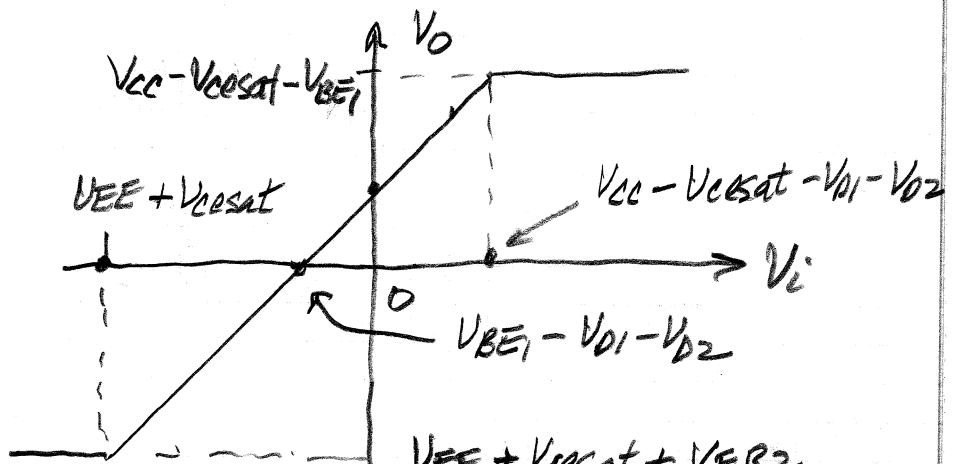 Vo
Vcc - Vcesat - VBE1
VEE + Vcesat
Vcc - Vcesat - VD1 - VD2
Vi
0
VBE1 - VD1 - VD2
VEE + Vcesat + VEB2